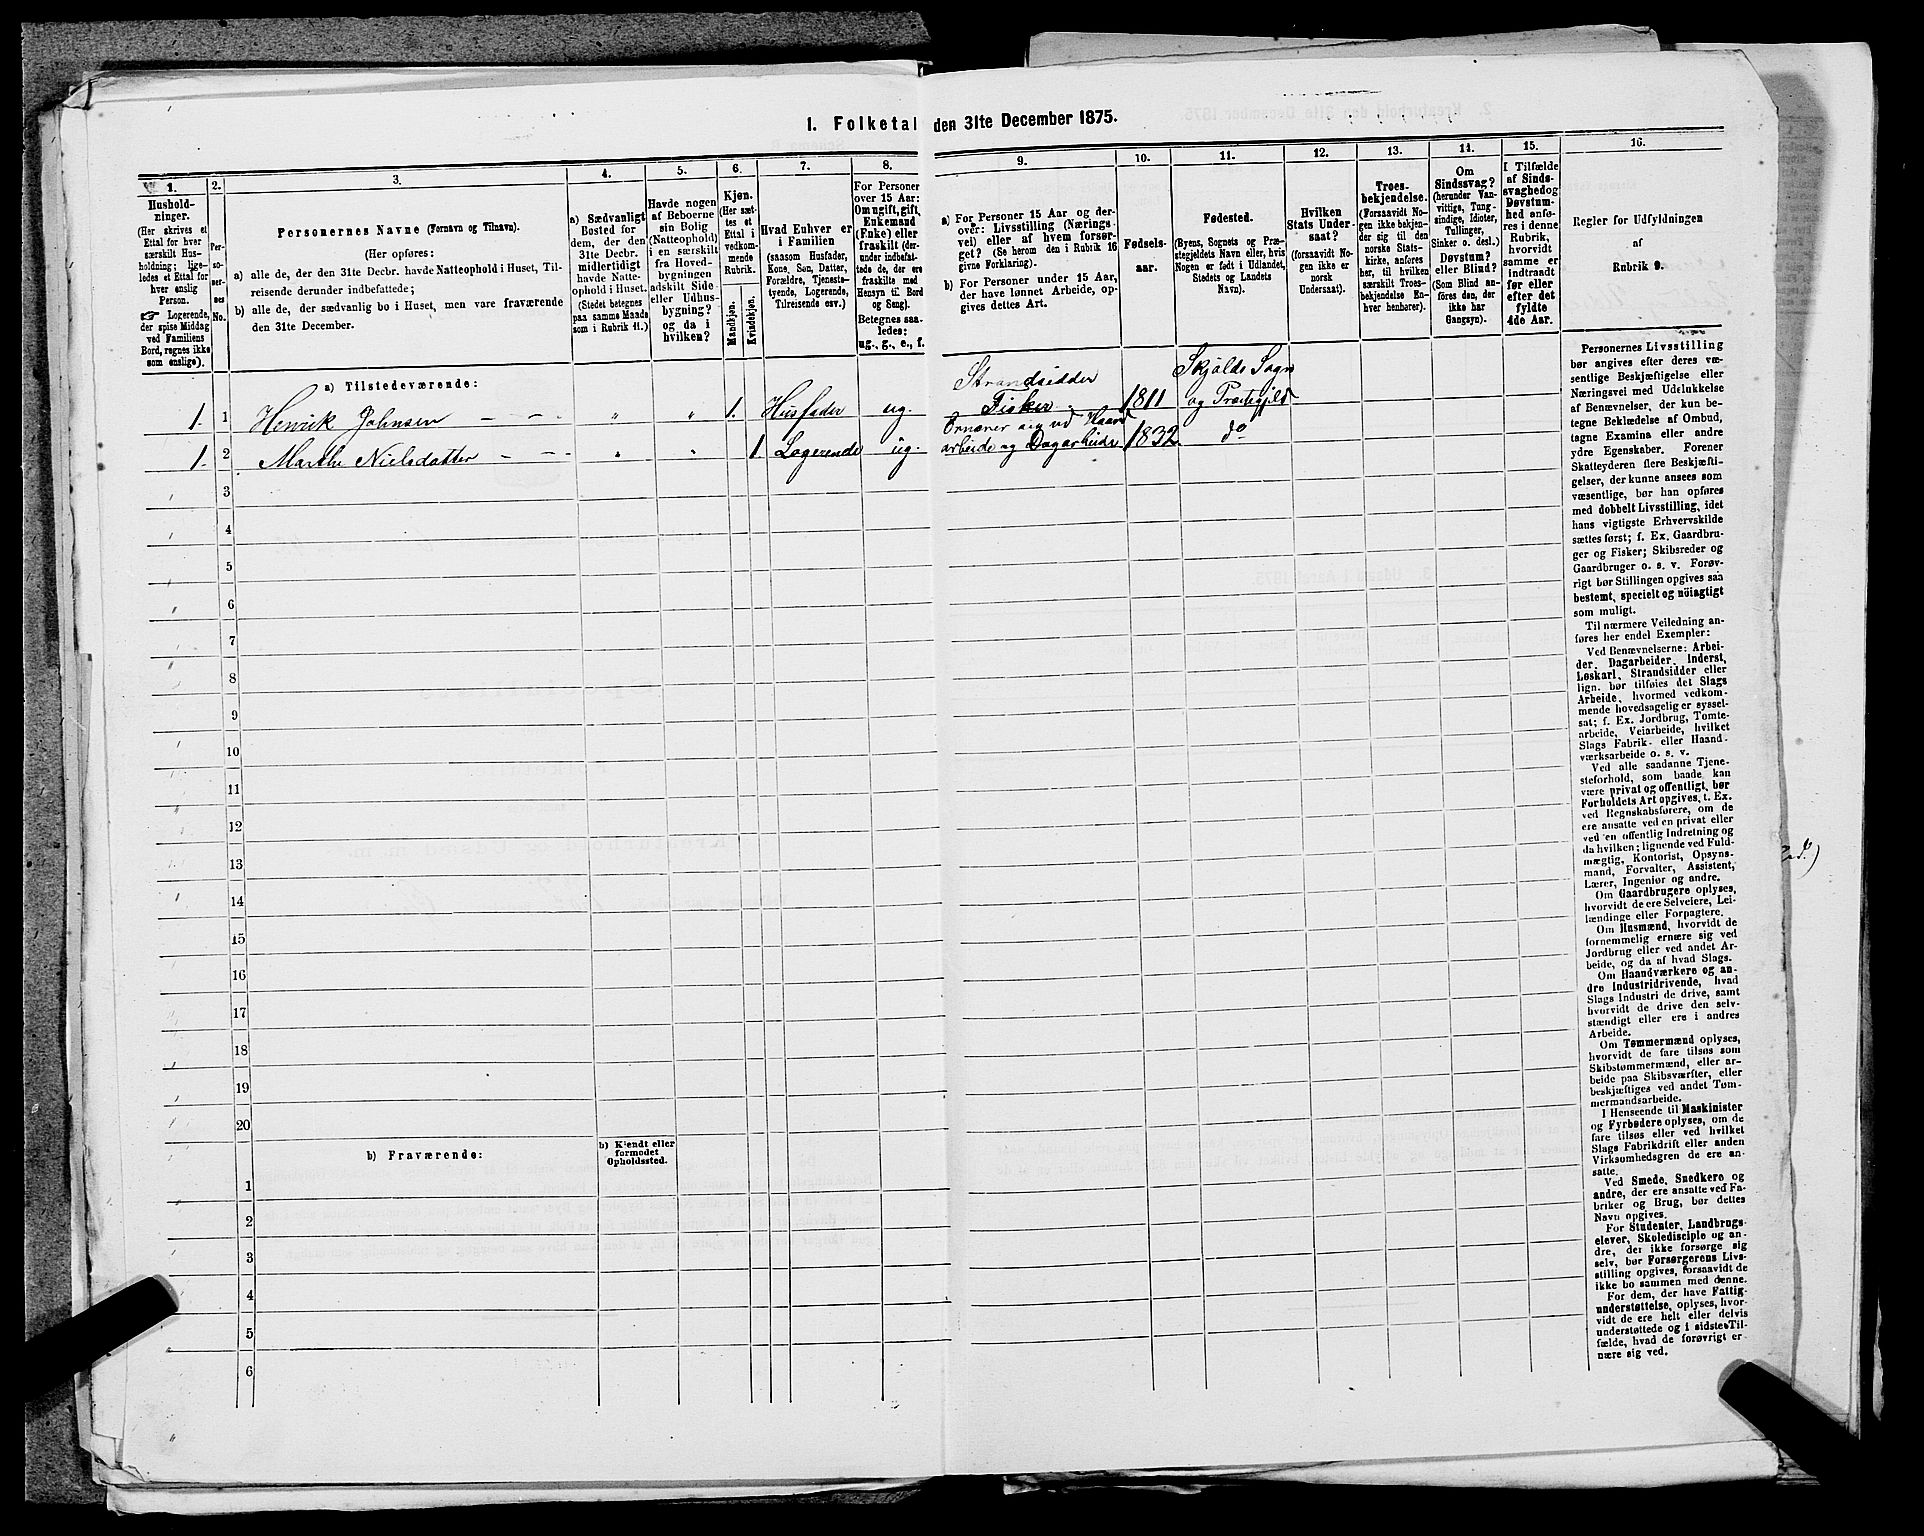 1. Folketal den 31te December 1875.
1.
Hushold-
ninger.
(Her skrives et
Ettal for hver
særskilt Hus-
holdning; lige-
ledes et Ettal for
hver enslig
Person.
☞ Logerende,
der spise Middag
ved Familiens
Bord, regnes ikke
som enslige).
2.
Per-
so-
ner-
nes
No.
3.
Personernes Navne (Fornavn og Tilnavn).
(Her opføres:
a) alle de, der den 31te Decbr. havde Natteophold i Huset, Til-
reisende derunder indbefattede;
b) alle de, der sædvanlig bo i Huset, men vare fraværende
den 31te December.
4.
a) Sædvanligt
Bosted for
dem, der den
31te Decbr.
midlertidigt
havde Natte-
ophold i Huset.
(Stedet betegnes
paa samme Maade
som i Rubrik 11.)
5.
Havde nogen
af Beboerne
sin Bolig
(Natteophold)
i en særskilt
fra Hoved-
bygningen
adskilt Side-
eller Udhus-
bygning?
og da i
hvilken?
6.
Kjøn.
(Her sæt-
tes et
Ettal i
vedkom-
mende
Rubrik.
Mandkjøn.
Kvindekjøn.
7.
Hvad Enhver er
i Familien
(saasom Husfader,
Kone, Søn, Datter,
Forældre, Tjeneste-
tyende, Logerende,
Tilreisende osv.)
8.
For Personer
over 15 Aar:
Om ugift, gift,
Enkemand
(Enke) eller
fraskilt (der-
under indbefat-
tede de, der ere
fraskilte med
Hensyn til Bord
og Seng).
Betegnes saa-
ledes:
ug., g., e., f.
9.
a) For Personer 15 Aar og der-
over: Livsstilling (Nærings-
vei) eller af hvem forsør-
get? (Se herom den i Rubrik 16
givne Forklaring).
b) For Personer under 15 Aar,
der have lønnet Arbeide, op-
gives dettes Art.
10.
Fødsels-
aar.
11.
Fødested.
(Byens, Sognets og Præ-
stegjeldets Navn eller, hvis
Nogen er født i Udlandet,
Stedets og Landets
Navn).
12.
Hvilken
Stats Under-
saat?
(forsaavidt No-
gen ikke er
norsk
Undersaat).
13.
Troes-
bekjendelse.
(Forsaavidt No-
gen ikke bekjen-
der sig til den
norske Stats-
kirke, anføres
her, til hvilken
særskilt Troes-
bekjendelse En-
hver henhører).
14.
Om
Sindssvag?
(herunder Van-
vittige, Tung-
sindige, Idioter,
Tullinger,
Sinker o. desl.)
Døvstum?
eller Blind?
(Som Blind an-
føres den, der
ikke har
Gangsyn).
15.
I Tilfælde
af Sinds-
svaghed og
Døvstum-
hed anfø-
res i denne
Rubrik,
hvorvidt
samme er
indtraadt
før eller
efter det
fyldte
4de Aar.
16.
Regler for Udfyldningen
af
Rubrik 9.
a) Tilstedeværende:
1. 1 Henrik Johnsen — — — „ „ 1. Husfader ug. Strandsidder Fisker 1811 Skjolds Sogn og Præstegjeld
1. 2 Marthe Nielsdatter — — — „ „ 1. Logerende ug. Ernærer sig ved Haand arbeide og Dagarbeide 1832 do
3
4
5
6
7
8
9
10
11
12
13
14
15
16
17
18
19
20
b) Fraværende:
b) Kjendt eller
formodet
Opholdssted.
1
2
3
4
5
6
Personernes Livsstilling
bør angives efter deres væ-
sentlige Beskjæftigelse eller
Næringsvei med Udelukkelse
af Benævnelser, der kun be-
tegne Beklædelse af Ombud,
tagne Examina eller andre
ydre Egenskaber. Forener
Skatteyderen flere Beskjæfti-
gelser, der kunne ansees som
væsentlige, bør han opføres
med dobbelt Livsstilling, idet
hans vigtigste Erhvervskilde
sættes først; f. Ex. Gaardbru-
ger og Fisker; Skibsreder og
Gaardbruger o. s. v. Forøv-
rigt bør Stillingen opgives saa
bestemt, specielt og nöiagtigt
som muligt.
Til nærmere Veiledning an-
føres her endel Exempler:
Ved Benævnelserne: Arbei-
der, Dagarbeider, Inderst,
Løskarl, Strandsidder eller
lign. bør tilføies det Slags
Arbeide, hvormed vedkom-
mende hovedsagelig er syssel-
sat; f. Ex. Jordbrug, Tomte-
arbeide, Veiarbeide, hvilket
Slags Fabrik- eller Haand-
værksarbeide o. s. v.
Ved alle saadanne Tjene-
steforhold, som baade kan
være privat og offentligt, bør
Forholdets Art opgives, t. Ex.
ved Regnskabsførere, om de
ere ansatte ved en privat eller
ved en offentlig Indretning og
da hvilken; lignende ved Fuld-
mægtig, Kontorist, Opsyns-
mand, Forvalter, Assistent,
Lærer, Ingeniør og andre.
Om Gaardbrugere oplyses,
hvorvidt de ere Selveiere, Lei-
lændinge eller Forpagtere.
Om Husmænd, hvorvidt de
fornemmelig ernære sig ved
Jordbrug eller ved andet Ar-
beide, og da af hvad Slags.
Om Haandværkere og an-
dre Industridrivende, hvad
Slags Industri de drive, samt
hvorvidt de drive den selv-
stændigt eller ere i andres
Arbeide.
Om Tømmermænd oplyses,
hvorvidt de fare tilsøs som
Skibstømmermænd, eller ar-
beide paa Skibsværfter, eller
beskjæftiges ved andet Tøm-
mermandsarbeide.
I Henseende til Maskinister
og Fyrbødere oplyses, om de
fare tilsøs eller ved hvilket
Slags Fabrikdrift eller anden
Virksomhedsgren de ere an-
satte.
Ved Smede, Snedkere og
andre, der ere ansatte ved Fa-
briker og Brug, bør dettes
Navn opgives.
For Studenter, Landbrugs-
elever, Skoledisciple og an-
dre, der ikke forsørge sig
selv, bør Forsørgerens Livs-
stilling opgives, forsaavidt de
ikke bo sammen med denne.
For dem, der have Fattig-
understøttelse, oplyses, hvor-
vidt de ere helt eller delvis
understøttede og i sidste Til-
fælde, hvad de forøvrigt er-
nære sig ved.